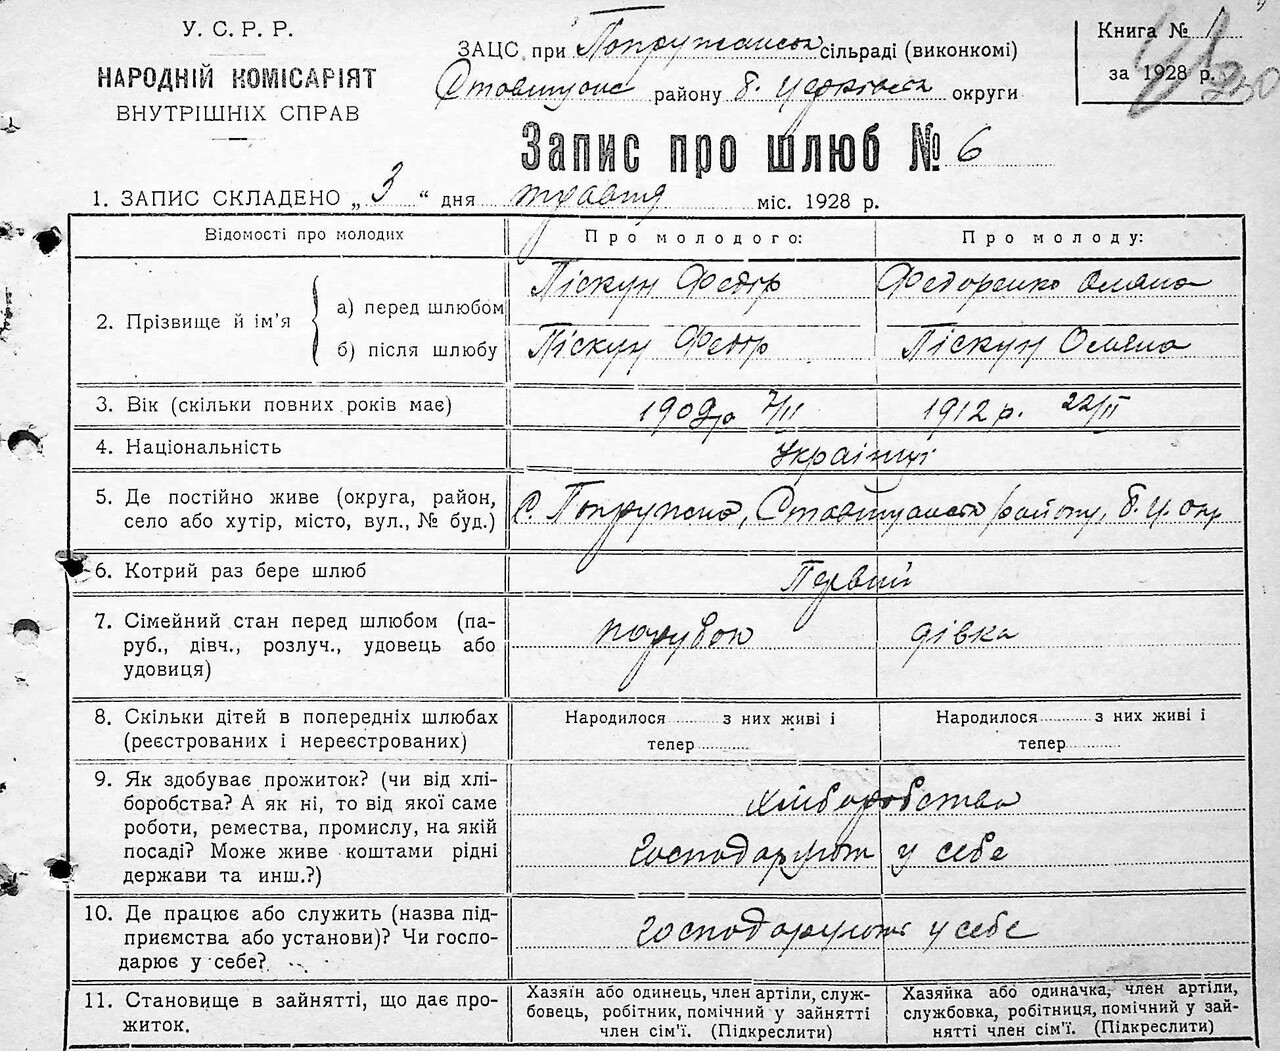 У. С. Р. Р.
НАРОДНІЙ КОМІСАРІЯТ
ВНУТРІШНІХ СПРАВ
ЗАЦС при Попружанськ сільраді (виконкомі)
району Б. Церківськ округи
Книга №
за 1928 р.
Запис про шлюб № 6
1. ЗАПИС СКЛАДЕНО „3“ дня травня міс. 1928 р.
Відомості про молодих
Про молодого:
Про молоду:
2. Прізвище й ім'я
а) перед шлюбом
Піскун Федір
Федоренко Оляна
б) після шлюбу
Піскун Федір
Піскун Оляна
3. Вік (скільки повних років має)
1909р 7/II
1912 р. 22/II
4. Національність
Українці
5. Де постійно живе (округа, район,
село або хутір, місто, вул., № буд.)
с. Попружна, району, Б. Ц. окр
6. Котрий раз бере шлюб
Первий
7. Сімейний стан перед шлюбом (па-
руб., дівч., розлуч., удовець або
удовиця)
парубок
дівка
8. Скільки дітей в попередніх шлюбах
(реєстрованих і нереєстрованих)
Народилося з них живі і
тепер
Народилося з них живі і
тепер
9. Як здобуває прожиток? (чи від хлі-
боробства? А як ні, то від якої саме
роботи, ремества, промислу, на якій
посаді? Може живе коштами рідні
держави та инш.?)
хліборобства
господарують у себе
10. Де працює або служить (назва під-
приємства або установи)? Чи госпо-
дарює у себе?
господарують у себе
11. Становище в зайнятті, що дає про-
житок.
Хазяїн або одинець, член артілі, служ-
бовець, робітник, помічний у зайнятті
член сім'ї. (Підкреслити)
Хазяйка або одиначка, член артілі,
службовка, робітниця, помічний у зай-
нятті член сім'ї. (Підкреслити)